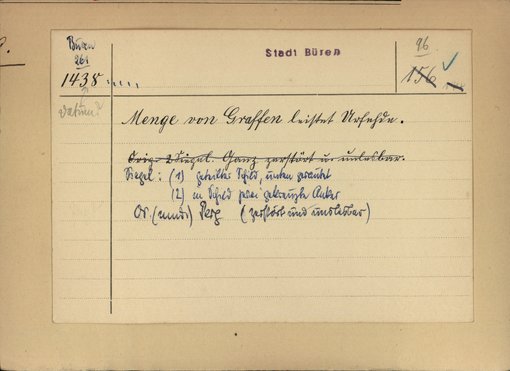 Büren
261
Stadt Büren
96
1438
156
datum?
Menge von Graffen leistet Urfehde.
Orig. 2 Siegel. Ganz zerstört u. unlesbar.
Siegel: (1) geteilter Schild, unten gerautet
(2) in Schild zwei gekreuzte Anker
Or. (mmb) Perg (zerstört und unlesbar)